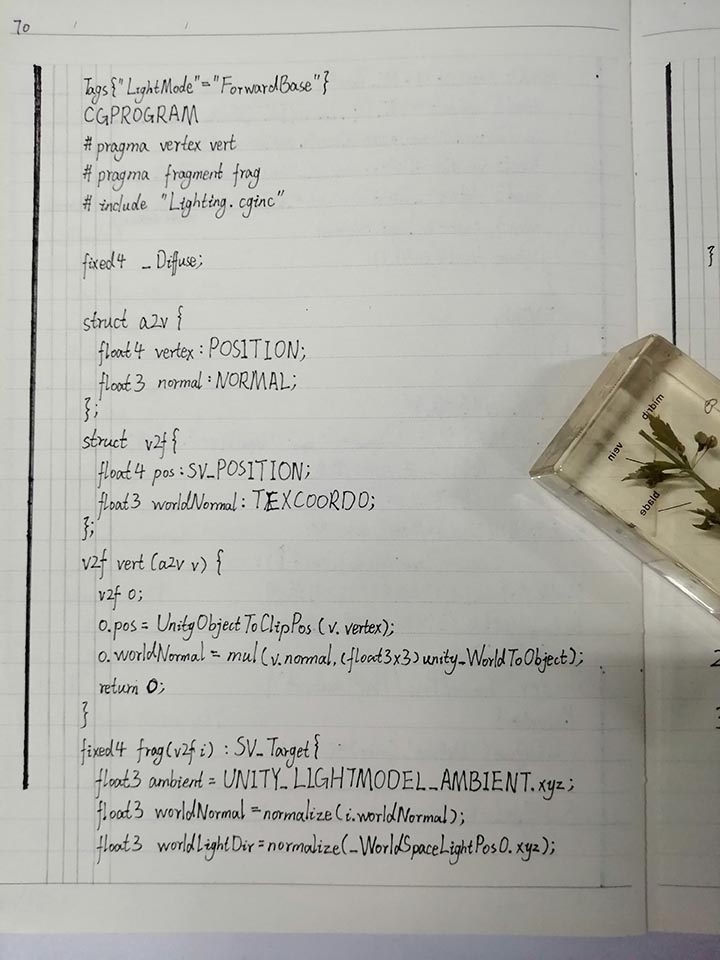 70
Tags{"LightMode"="ForwardBase"}
CGPROGRAM
# pragma vertex vert
# pragma fragment frag
# include "Lighting.cginc"
fixed4 _Diffuse;
struct a2v {
float4 vertex:POSITION;
float3 normal:NORMAL;
};
struct v2f{
float4 pos:SV_POSITION;
float3 worldNormal:TEXCOORD0;
};
v2f vert(a2v v) {
v2f o;
o.pos= UnityObjectToClipPos(v.vertex);
o.worldNormal = mul(v.normal,(float3x3)unity_WorldToObject);
return o;
}
fixed4 frag(v2f i) : SV_Target{
float3 ambient = UNITY_LIGHTMODEL_AMBIENT.xyz;
float3 worldNormal =normalize(i.worldNormal);
float3 worldLightDir=normalize(_WorldSpaceLightPos0.xyz);
}
midrib
vein
blade